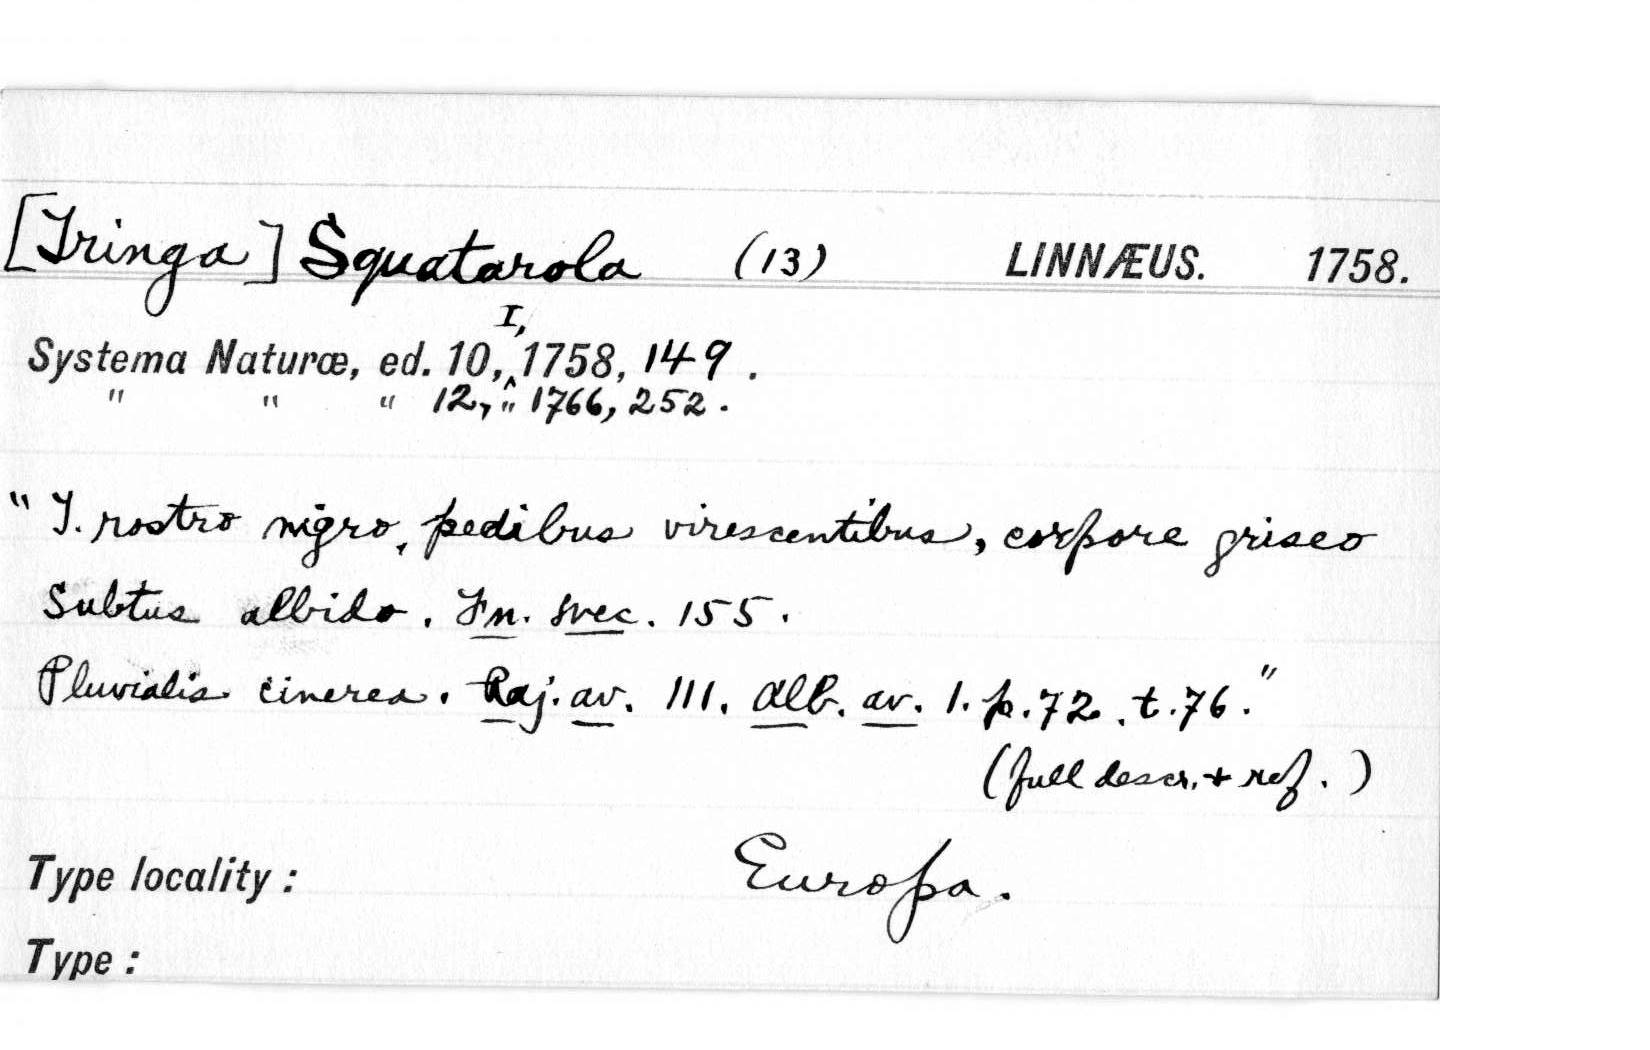 [Tringa] Squatarola (13) LINNÆUS. 1758.
Systema Naturæ, ed. 10, I, 1758, 149.
" " " 12, " 1766, 252.
"T. rostro nigro, pedibus virescentibus, corpore griseo
Subtus albido. Fn. svec. 155.
Pluvialis cinerea. Raj. av. 111. Alb. av. 1. p. 72. t. 76."
(full descr. + ref.)
Type locality: Europa.
Type: